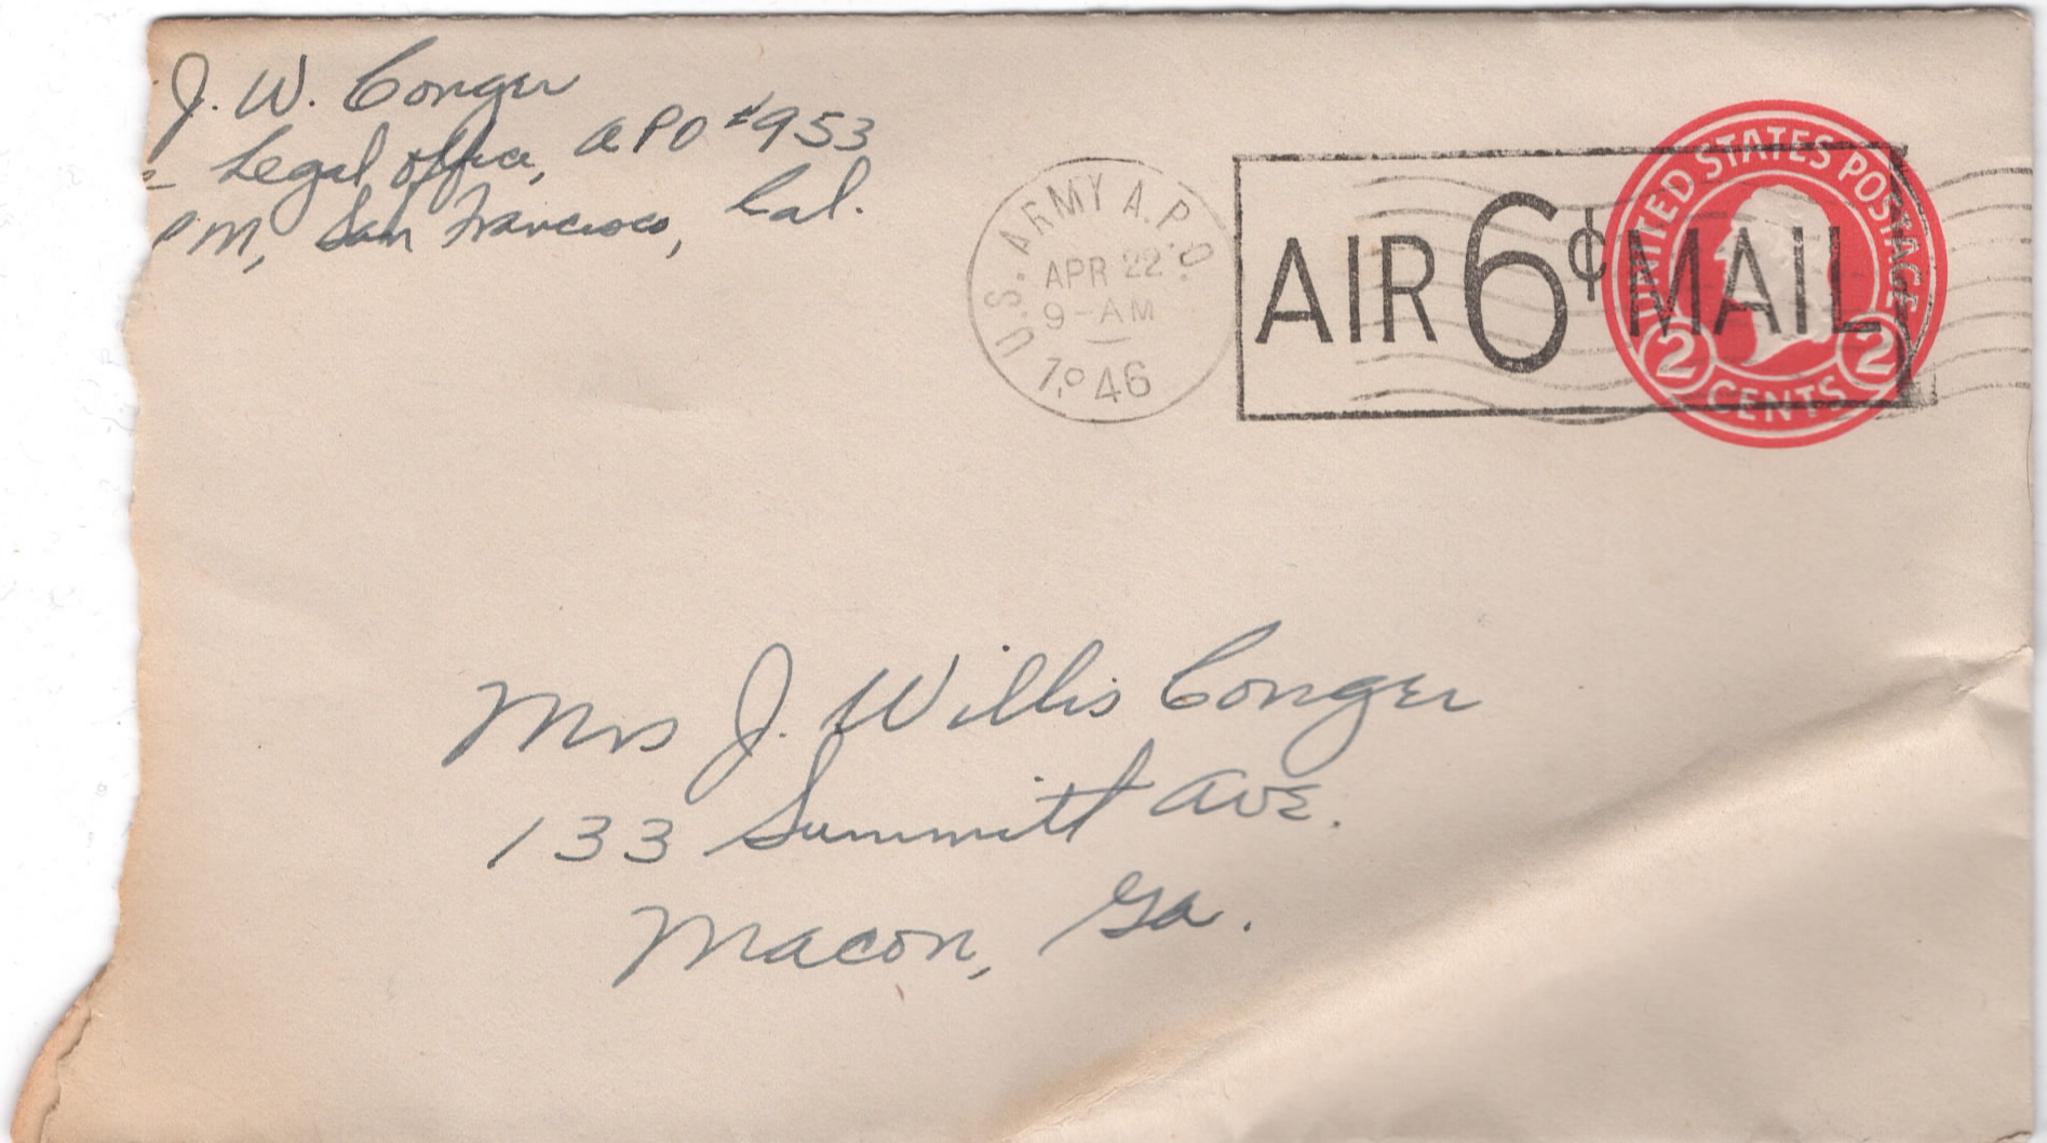 J. W. Conger
Legal office, APO #953
PM, San Francisco, Cal.
U.S. ARMY A.P.O.
APR 22
9-AM
46
AIR 6¢ MAIL
UNITED STATES POSTAGE
2 CENTS 2
Mrs J. Willis Conger
133 Summitt Ave.
Macon, Ga.